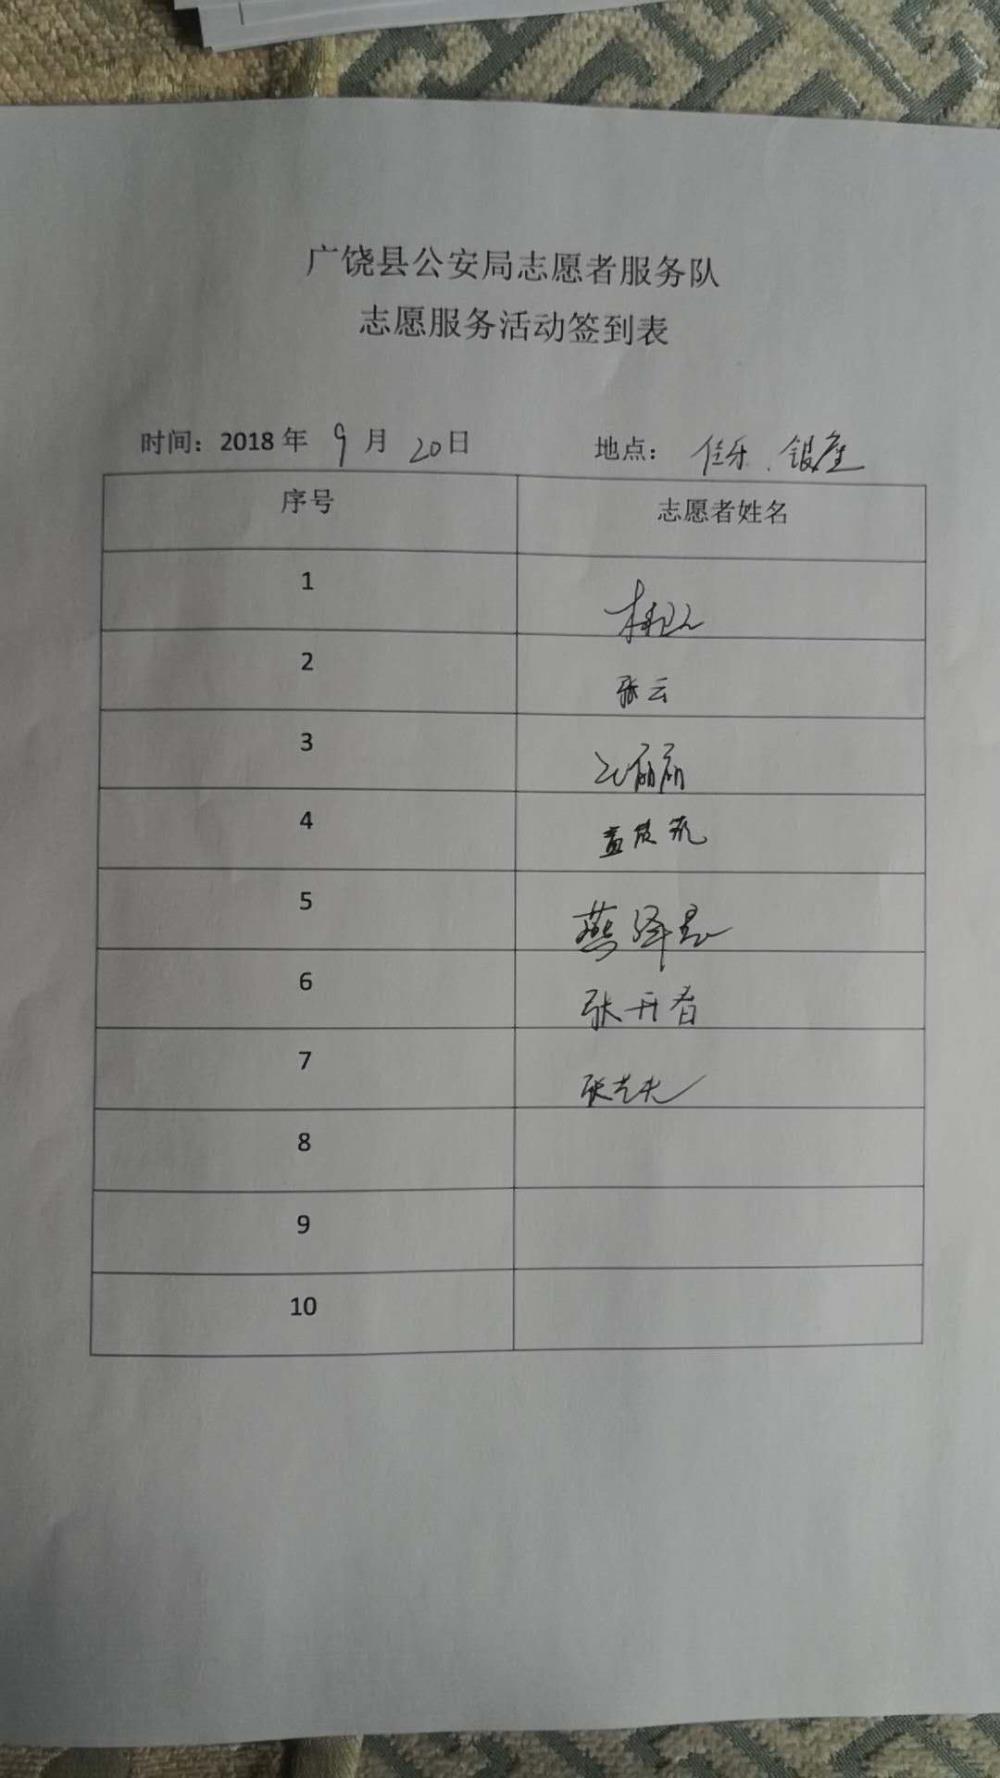 广饶县公安局志愿者服务队
志愿服务活动签到表
时间：2018 年 9 月 20日 地点： 佳乐、银座
序号 志愿者姓名
1
2 张云
3 丽丽
4
5 燕泽
6 张开春
7 张
8
9
10